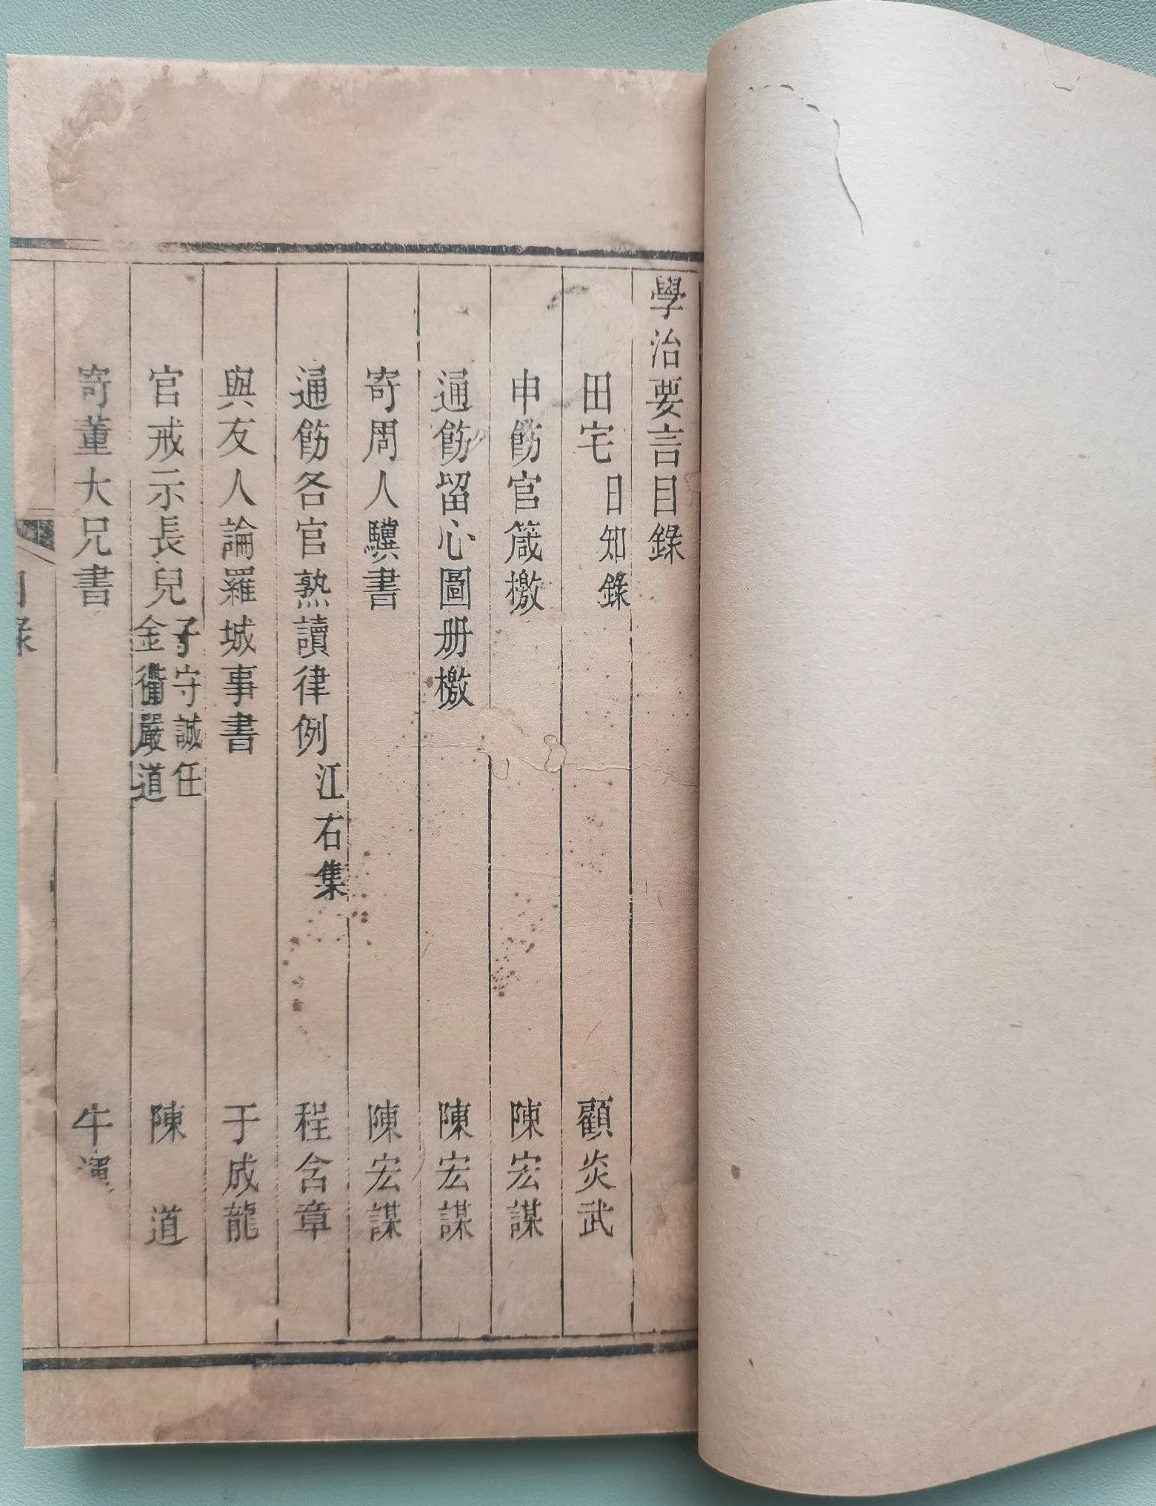 學治要言目錄
田宅 日知錄 顧炎武
申飭官箴檄 陳宏謀
通飭留心圖册檄 陳宏謀
寄周人驥書 陳宏謀
通飭各官熟讀律例 江右集 程含章
與友人論羅城事書 于成龍
官戒示長兒 子守誠任金衢嚴道 陳道
寄董大兄書 牛運